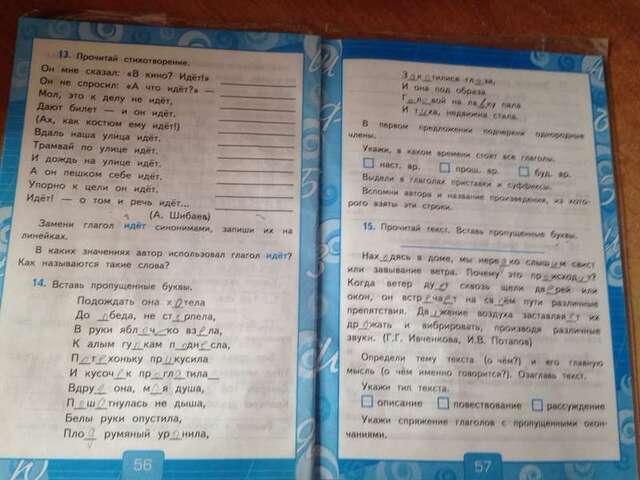 13. Прочитай стихотворение.
Он мне сказал: «В кино? Идёт!»
Он не спросил: «А что идёт?» —
Мол, это к делу не идёт,
Дают билет — и он идёт.
(Ах, как костюм ему идёт!)
Вдаль наша улица идёт,
Трамвай по улице идёт,
И дождь на улице идёт,
А он пешком себе идёт,
Упорно к цели он идёт,
Идёт! — о том и речь идёт...
(А. Шибаев)
Замени глагол идёт синонимами, запиши их на
линейках.
В каких значениях автор использовал глагол идёт?
Как называются такие слова?
14. Вставь пропущенные буквы.
Подождать она хотела
До обеда, не стерпела,
В руки яблочко взяла,
К алым губкам поднесла,
Потихоньку прокусила
И кусочек проглотила
Вдруг она, моя душа,
Пошатнулась не дыша,
Белы руки опустила,
Плод румяный уронила,
56
Закатилися глаза,
И она под образа
Головой на лавку пала
И тиха, недвижна стала.
В первом предложении подчеркни однородные
члены.
Укажи, в каком времени стоят все глаголы.
наст. вр. прош. вр. буд. вр.
Выдели в глаголах приставки и суффиксы.
Вспомни автора и название произведения, из кото-
рого взяты эти строки.
15. Прочитай текст. Вставь пропущенные буквы.
Находясь в доме, мы нередко слышим свист
или завывание ветра. Почему это происходит?
Когда ветер дует сквозь щели дверей или
окон, он встречает на своём пути различные
препятствия. Движение воздуха заставляет их
дрожать и вибрировать, производя различные
звуки. (Г.Г. Ивченкова, И.В. Потапов)
Определи тему текста (о чём?) и его главную
мысль (о чём именно говорится?). Озаглавь текст.
Укажи тип текста.
описание повествование рассуждение
Укажи спряжение глаголов с пропущенными окон-
чаниями.
57